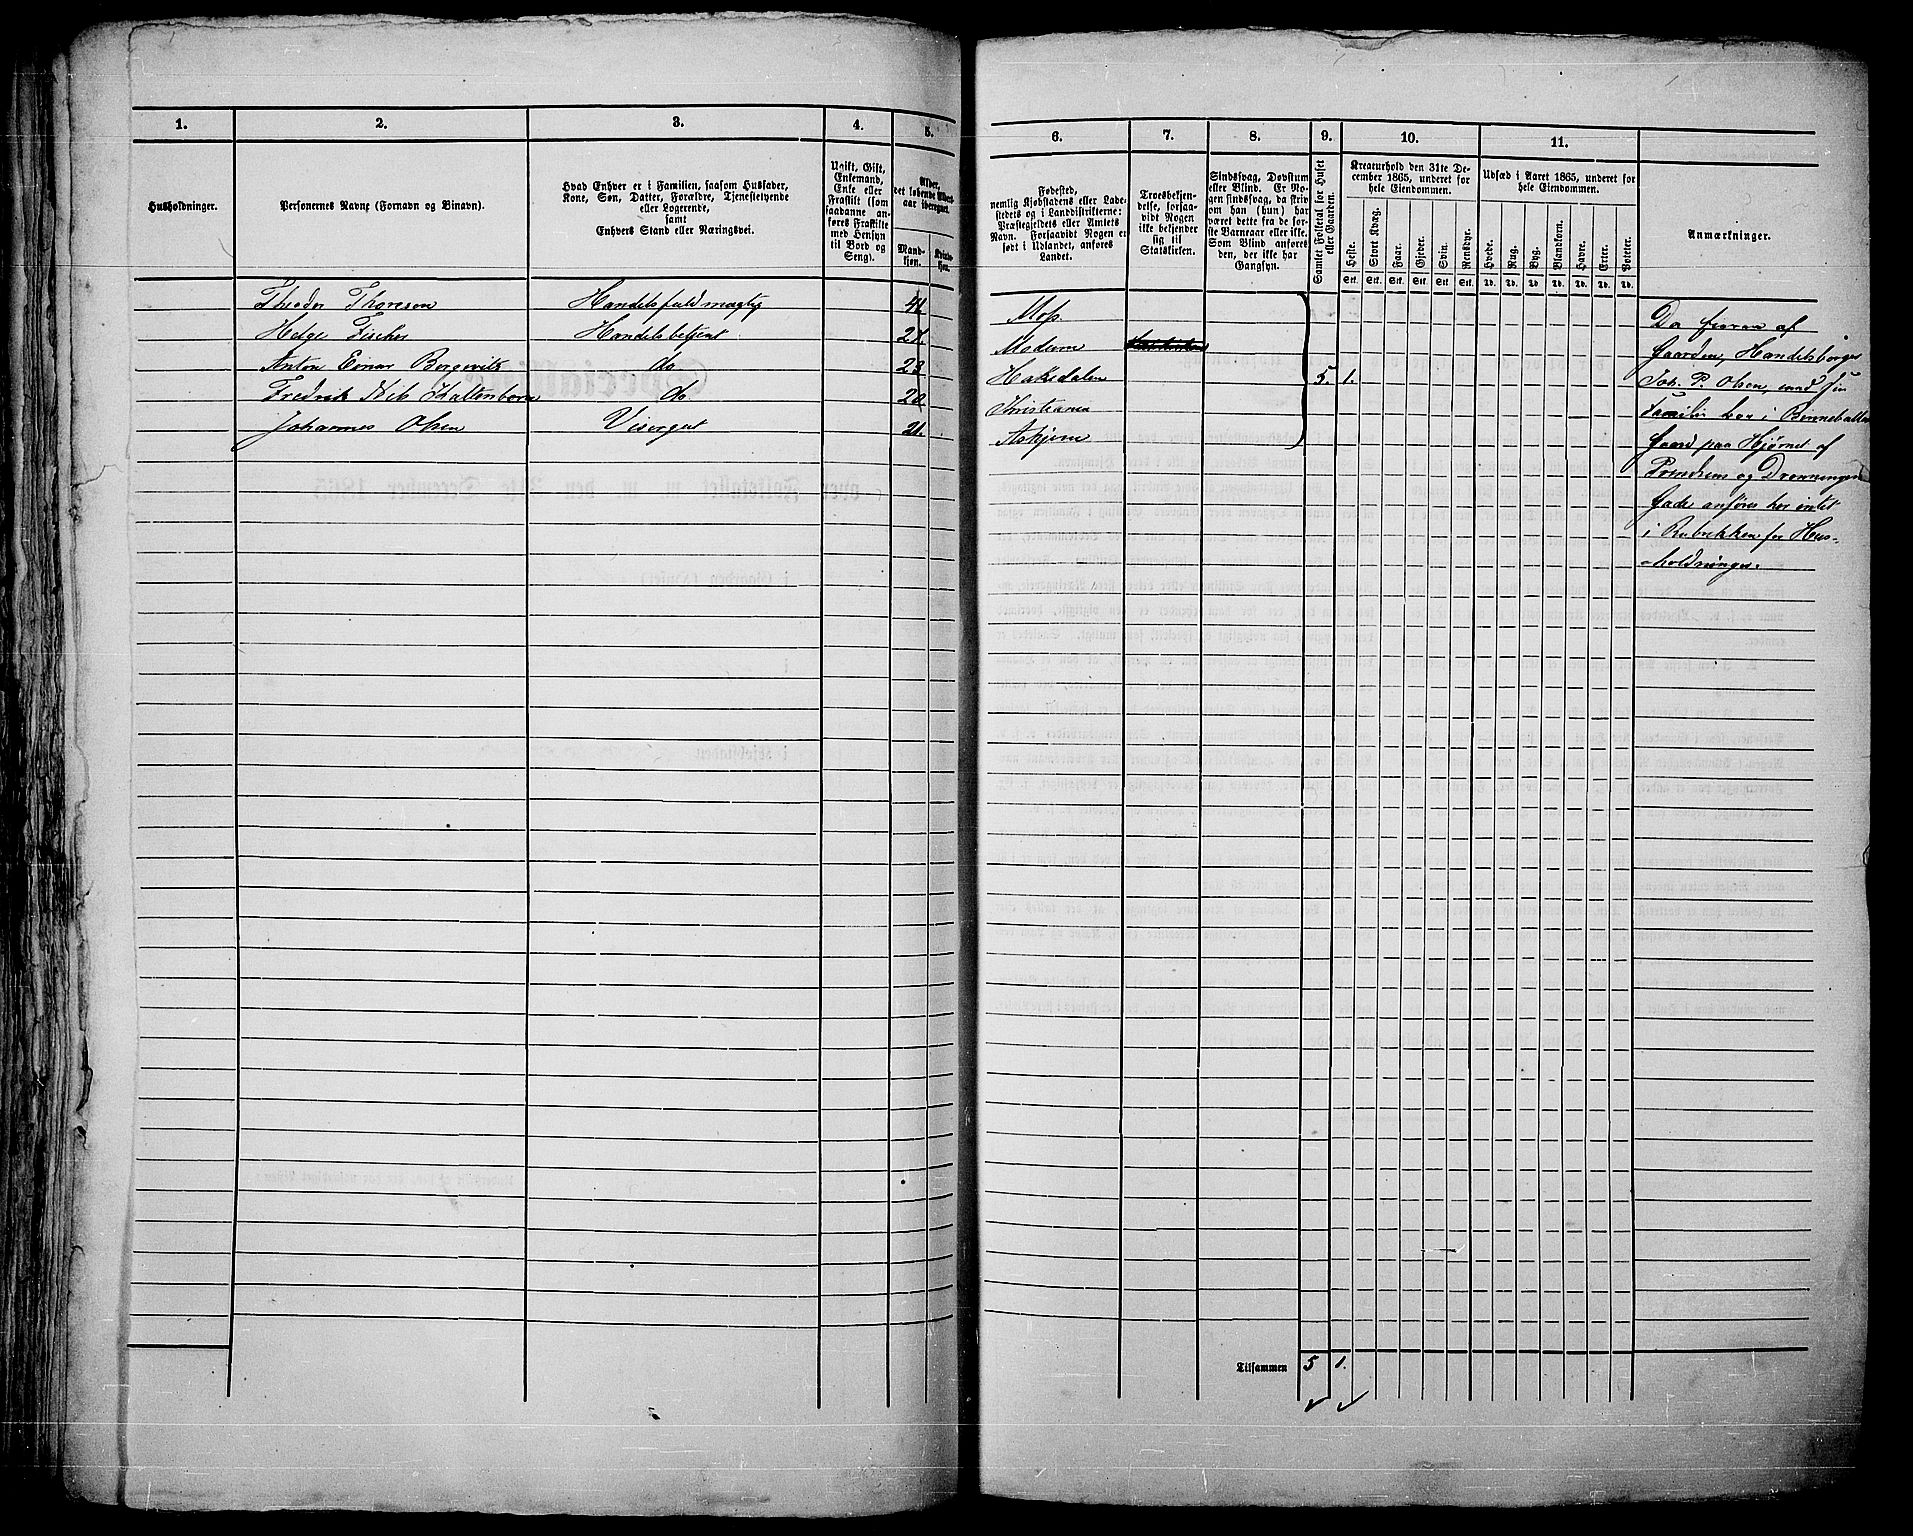 1.
2.
3.
4.
5.
Husholdninger.
Personernes Navne (Fornavn og Binavn).
Hvad Enhver er i Familien, saasom Husfader,
Kone, Søn, Datter, Forældre, Tjenestetyende
eller Logerende,
samt
Enhvers Stand eller Næringsvei.
Ugift, Gift,
Enkemand,
Enke eller
Fraskilt (som
saadanne an-
føres Fraskilte
med Hensyn
til Bord og
Seng).
Alder,
det løbende Alders-
aar iberegnet.
Mand-
kjøn.
Kvinde-
kjøn.
Theodor Thoresen Handelsfuldmægtig 41.
Helge Fischer Handelsbetjent 27.
Anton Einar do 23
Fredrik Kaltenborn do 20
Johannes Olsen Visergut 21.
6.
7.
8.
9.
10.
11.
Fødested,
nemlig Kjøbstadens eller Lade-
stedets og i Landdistrikterne:
Præstegjeldets eller Amtets
Navn. Forsaavidt Nogen er
født i Udlandet, anføres
Landet.
Troesbekjen-
delse, forsaa-
vidt Nogen
ikke bekjender
sig til
Statskirken.
Sindssvag, Døvstum
eller Blind. Er No-
gen sindssvag, da skriv
om han (hun) har
været dette fra de før-
ste Barneaar eller ikke.
Som Blind anføres
den, der ikke har
Gangsyn.
Samlet Folketal for Huset
eller Gaarden.
Kreaturhold den 31te De-
cember 1865, underet for
hele Eiendommen.
Heste.
Stort Kvæg.
Faar.
Gjeder.
Svin.
Rensdyr.
Stk. Stk. Stk. Stk. Stk. Stk.
Udsæd i Aaret 1865, underet for
hele Eiendommen.
Hvede.
Rug.
Byg.
Blandkorn.
Havre.
Erter.
Poteter.
Td. Td. Td. Td. Td. Td. Td.
Anmærkninger.
Moss.
Modum
Hakedalen 5. 1.
Christiania
Askjem
Da Eieren af
Gaarden, Handelsborger
Joh. P. Olsen, med sin
Familie bor i
Gaard paa Hjørnet af
Prindsens og Dronningens
Gade anføres her intet
i Rubrikken for Hus-
holdninger.
Tilsammen 5 1.